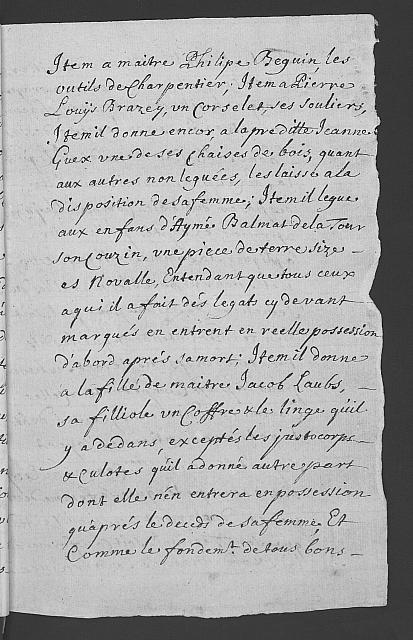 Item a maitre Philipe Beguin, les
outils de Charpentier; Item a Pierre
Louÿs Brazey, vn Corselet, ses souliers,
Item il donne encor a la preditte Jeanne
Guex vne de ses chaises de bois, quant
aux autres non leguées, les laisse a la
disposition de sa femme; Item il legue
aux enfans d'Aymé Balmat de la Tour
son Couzin, vne piece de terre size
es Novalle, Entendant que tous ceux
a qui il a fait des legats cy devant
marqués en entrent en reelle possession
d'abord aprés sa mort; Item il donne
a la fille de maitre Jacob Laubs,
sa filliole vn Coffre & le linge qu'il
y a dedans, exceptés les justocorps
& culotes qu'il a donné autre part
dont elle n'en entrera en possession
qu'aprés le deceds de sa femme, Et
Comme le fondemt. de tous bons